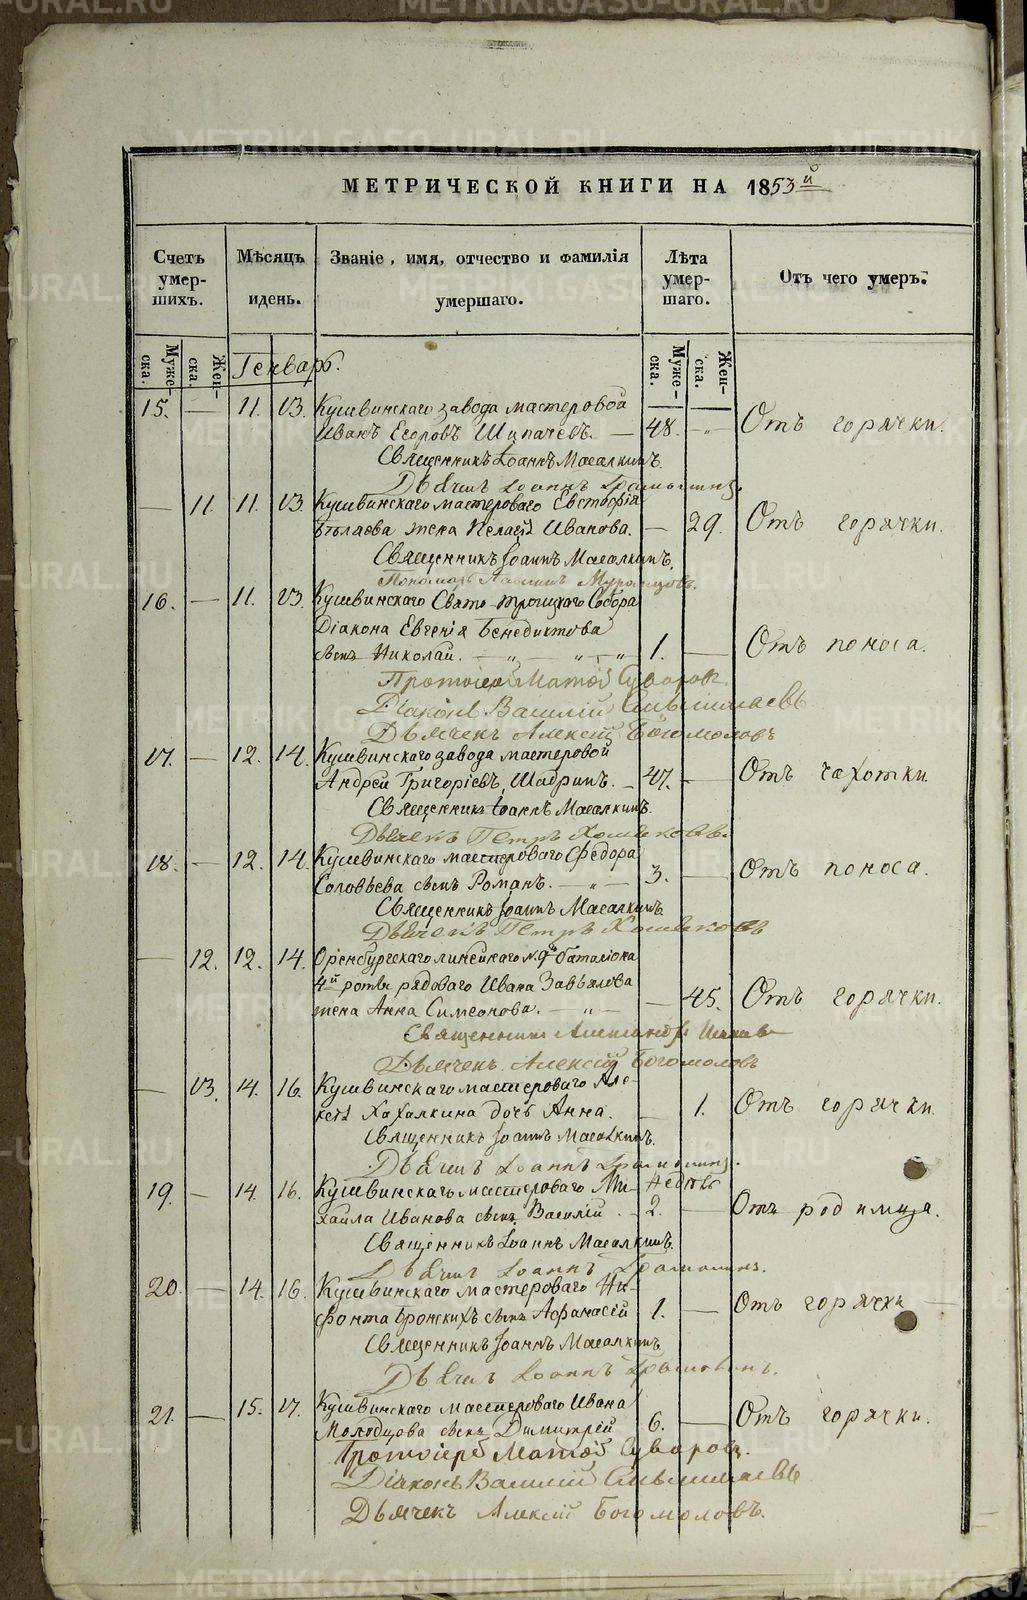 МЕТРИЧЕСКОЙ КНИГИ НА 1853й
Счетъ умершихъ. Мѣсяцъ и день. Званіе, имя, отчество и фамилія умершаго. Лѣта умершаго. Отъ чего умеръ.
Мужеска. Женска. Генварь. Мужеска. Женска.
15. — 11. 13. Кушвинскаго завода мастеровой
Иванъ Егоровъ Шипачевъ. — 48. -„- Отъ горячки.
Священникъ Іоаннъ Масалкинъ.
Дьячекъ Іоаннъ
— 11. 11. 13. Кушвинскаго мастероваго Евстафія
жена Пелагія Иванова. — 29. Отъ горячки.
Священникъ Іоаннъ Масалкинъ.
Пономарь
16. — 11. 13. Кушвинскаго Свято-Троицкаго Собора
Діакона Евгенія Бенедиктова
сынъ Николай. — „ — „ — „ — 1. — Отъ поноса.
Протоіерей Матѳій Суворовъ.
Діаконъ Василій
Дьячекъ Алексій Богомоловъ
17. — 12. 14. Кушвинскаго завода мастеровой
Андрей Григоріевъ Шадринъ. — 47. — Отъ чахотки.
Священникъ Іоаннъ Масалкинъ.
Дьячекъ Петръ Хомяковъ.
18. — 12. 14. Кушвинскаго мастероваго Федора
Соловьева сынъ Романъ. — „ — 3. — Отъ поноса.
Священникъ Іоаннъ Масалкинъ
Дьячекъ Петръ Хомяковъ
— 12. 12. 14. Оренбургскаго линейнаго №9го баталіона
4й роты рядоваго Ивана Завьялова
жена Анна Симеонова. — „ — — 45. Отъ горячки.
Священникъ Александръ
Дьячекъ Алексій Богомоловъ
— 13. 14. 16. Кушвинскаго мастероваго Але-
ксѣя Хахалкина дочь Анна. — 1. Отъ горячки.
Священникъ Іоаннъ Масалкинъ.
Дьячекъ Іоаннъ
19. — 14. 16. Кушвинскаго мастероваго Ми- недѣль
хаила Иванова сынъ Василій. — 2. — Отъ родимца.
Священникъ Іоаннъ Масалкинъ.
Дьячекъ Іоаннъ
20. — 14. 16. Кушвинскаго мастероваго Ни-
фонта Бронскихъ сынъ Афанасій 1. — Отъ горячки —
Священникъ Іоаннъ Масалкинъ
Дьячекъ Іоаннъ
21. — 15. 17. Кушвинскаго мастероваго Ивана
Молодцова сынъ Димитрій 6. — Отъ горячки.
Протоіерей Матѳій Суворовъ.
Діаконъ Василій
Дьячекъ Алексій Богомоловъ.
METRIKI.GASO-URAL.RU